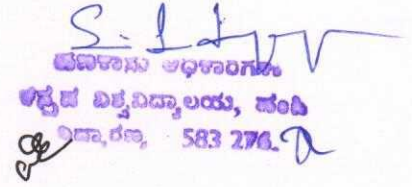 ಹಣಕಾಸು ಅಧಿಕಾರಿಗಳು
ಕನ್ನಡ ವಿಶ್ವವಿದ್ಯಾಲಯ, ಹಂಪಿ
ವಿದ್ಯಾರಣ್ಯ 583 276.